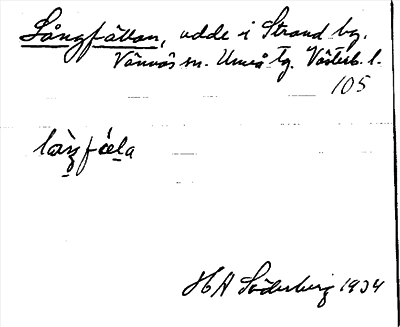 Långfällan, udde i Strand by.
Vännäs sn. Umeå tg. Västerb. l.
105
HA Söderberg 1934